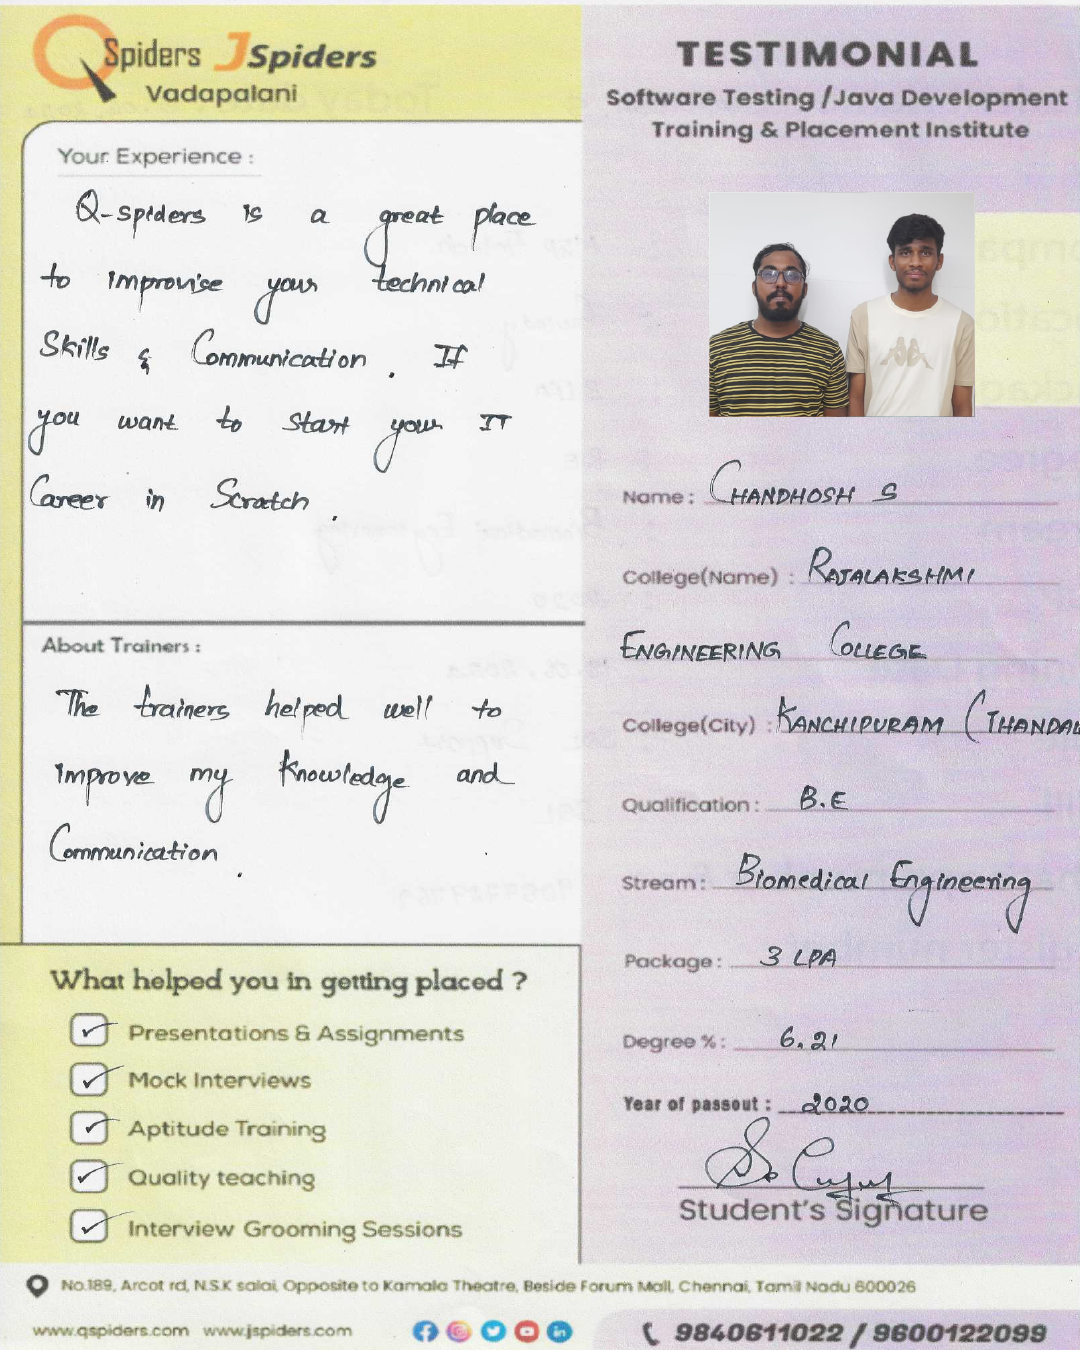 QSpiders JSpiders
Vadapalani
Your Experience :
Q-spiders is a great place
to improvise your technical
Skills & Communication . If
you want to start your IT
Career in Scratch .
About Trainers :
The trainers helped well to
improve my knowledge and
Communication .
What helped you in getting placed ?
Presentations & Assignments
Mock Interviews
Aptitude Training
Quality teaching
Interview Grooming Sessions
TESTIMONIAL
Software Testing /Java Development
Training & Placement Institute
Name : CHANDHOSH S
College(Name) : RAJALAKSHMI
ENGINEERING COLLEGE
College(City) : KANCHIPURAM (THANDAL
Qualification : B.E
Stream : Biomedical Engineering
Package : 3 LPA
Degree % : 6.21
Year of passout : 2020
Student's Signature
No.189, Arcot rd, N.S.K salai, Opposite to Kamala Theatre, Beside Forum Mall, Chennai, Tamil Nadu 600026
www.qspiders.com www.jspiders.com
9840611022 / 9600122099